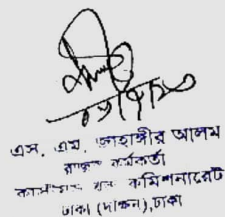 এস, এম, জাহাঙ্গীর আলম
রাজস্ব কর্মকর্তা
কাস্টমস এন্ড কমিশনারেট
ঢাকা (দক্ষিন), ঢাকা